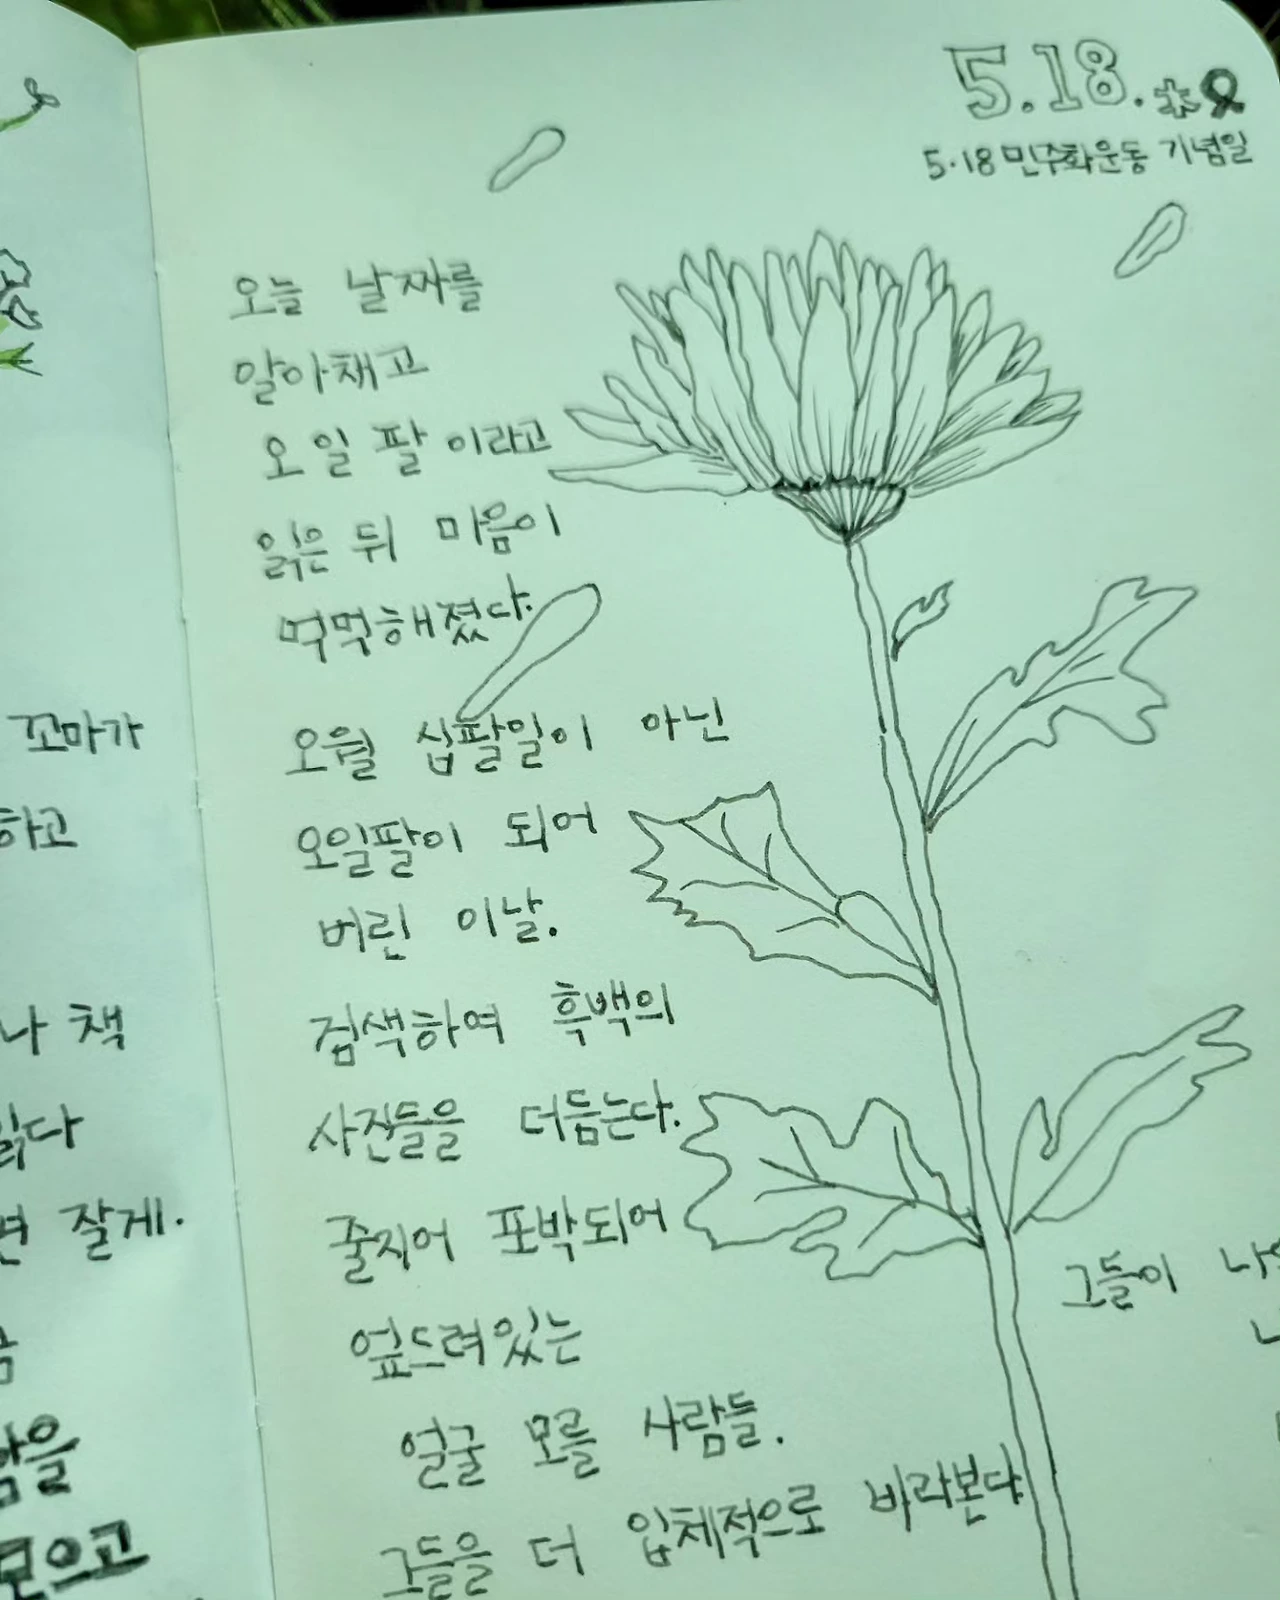 5.18.
5·18 민주화운동 기념일
오늘 날짜를
알아채고
오 일 팔 이라고
읽은 뒤 마음이
먹먹해졌다.
오월 십팔일이 아닌
오일팔이 되어
버린 이날.
검색하여 흑백의
사진들을 더듬는다.
줄지어 포박되어
엎드려있는
얼굴 모를 사람들.
그들을 더 입체적으로 바라본다
그들이
꼬마가
하고
나 책
읽다
잘게.
모으고